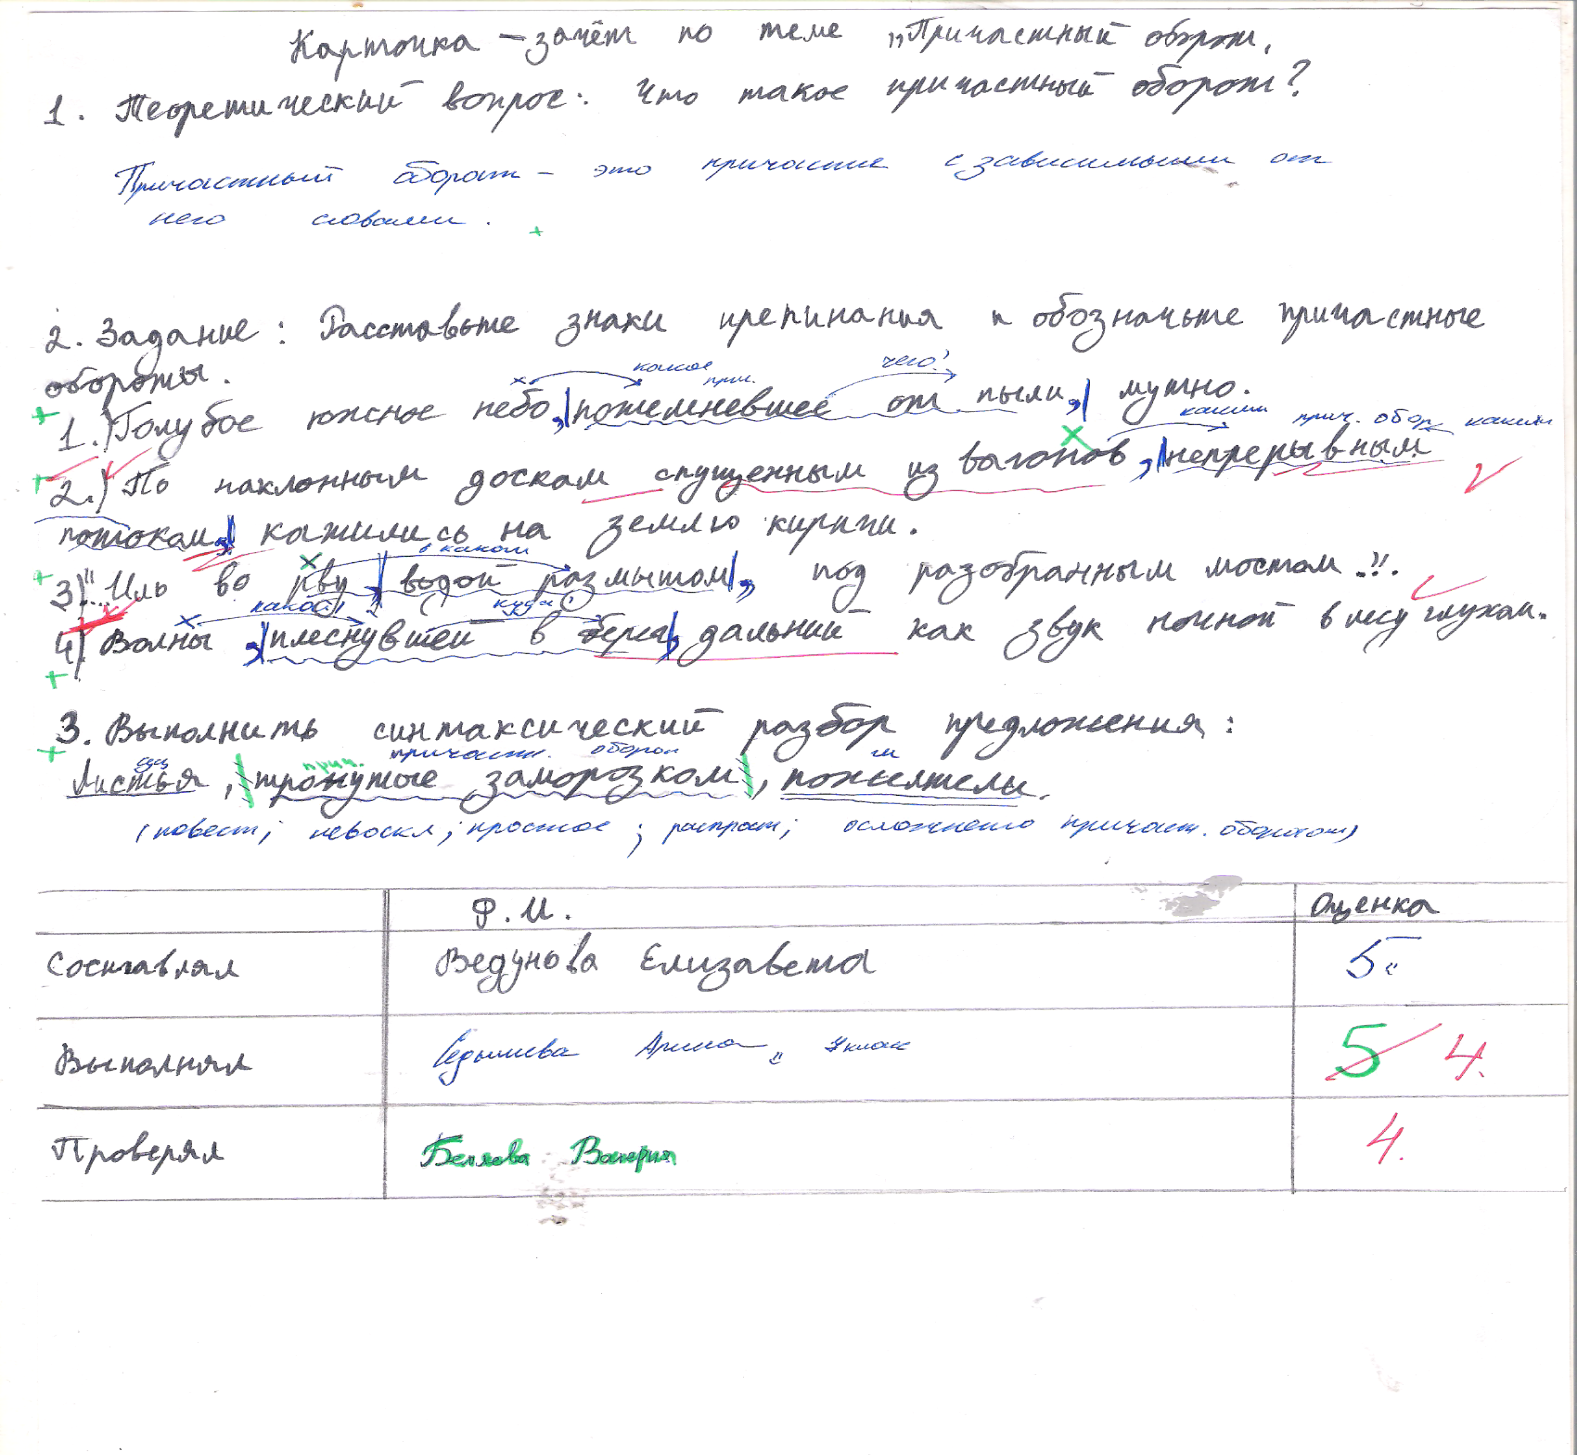 Карточка – зачёт по теме „Причастный оборот.
1. Теоретический вопрос: Что такое причастный оборот?
Причастный оборот – это причастие с зависимыми от
него словами.
+
2. Задание: Расставьте знаки препинания и обозначьте причастные
обороты.
х какое прич. чего?
+ 1.) Голубое южное небо, |потемневшее от пыли,| мутно.
х каким прич. обор. каким
+ 2.) По наклонным доскам спущенным из вагонов, |непрерывным
потокам,| катились на землю кирпичи.
х в каком
+ 3) "...Иль во рву, |водой размытом|, под разобранным мостом...".
х какой? куда?
4) Волны, |плеснувшей в берег,| дальний как звук ночной в лесу глухом.
+
3. Выполнить синтаксический разбор предложения:
+ сущ прич. причаст. оборот гл
Листья, |тронутые заморозком|, пожелтели.
(повест; невоскл; простое; распрост; осложнено причаст. оборотом)
Ф.И. Оценка
Составлял Ведунова Елизавета 5
Выполнял Арина 7 класс 5 4.
Проверял Белова Валерия 4.